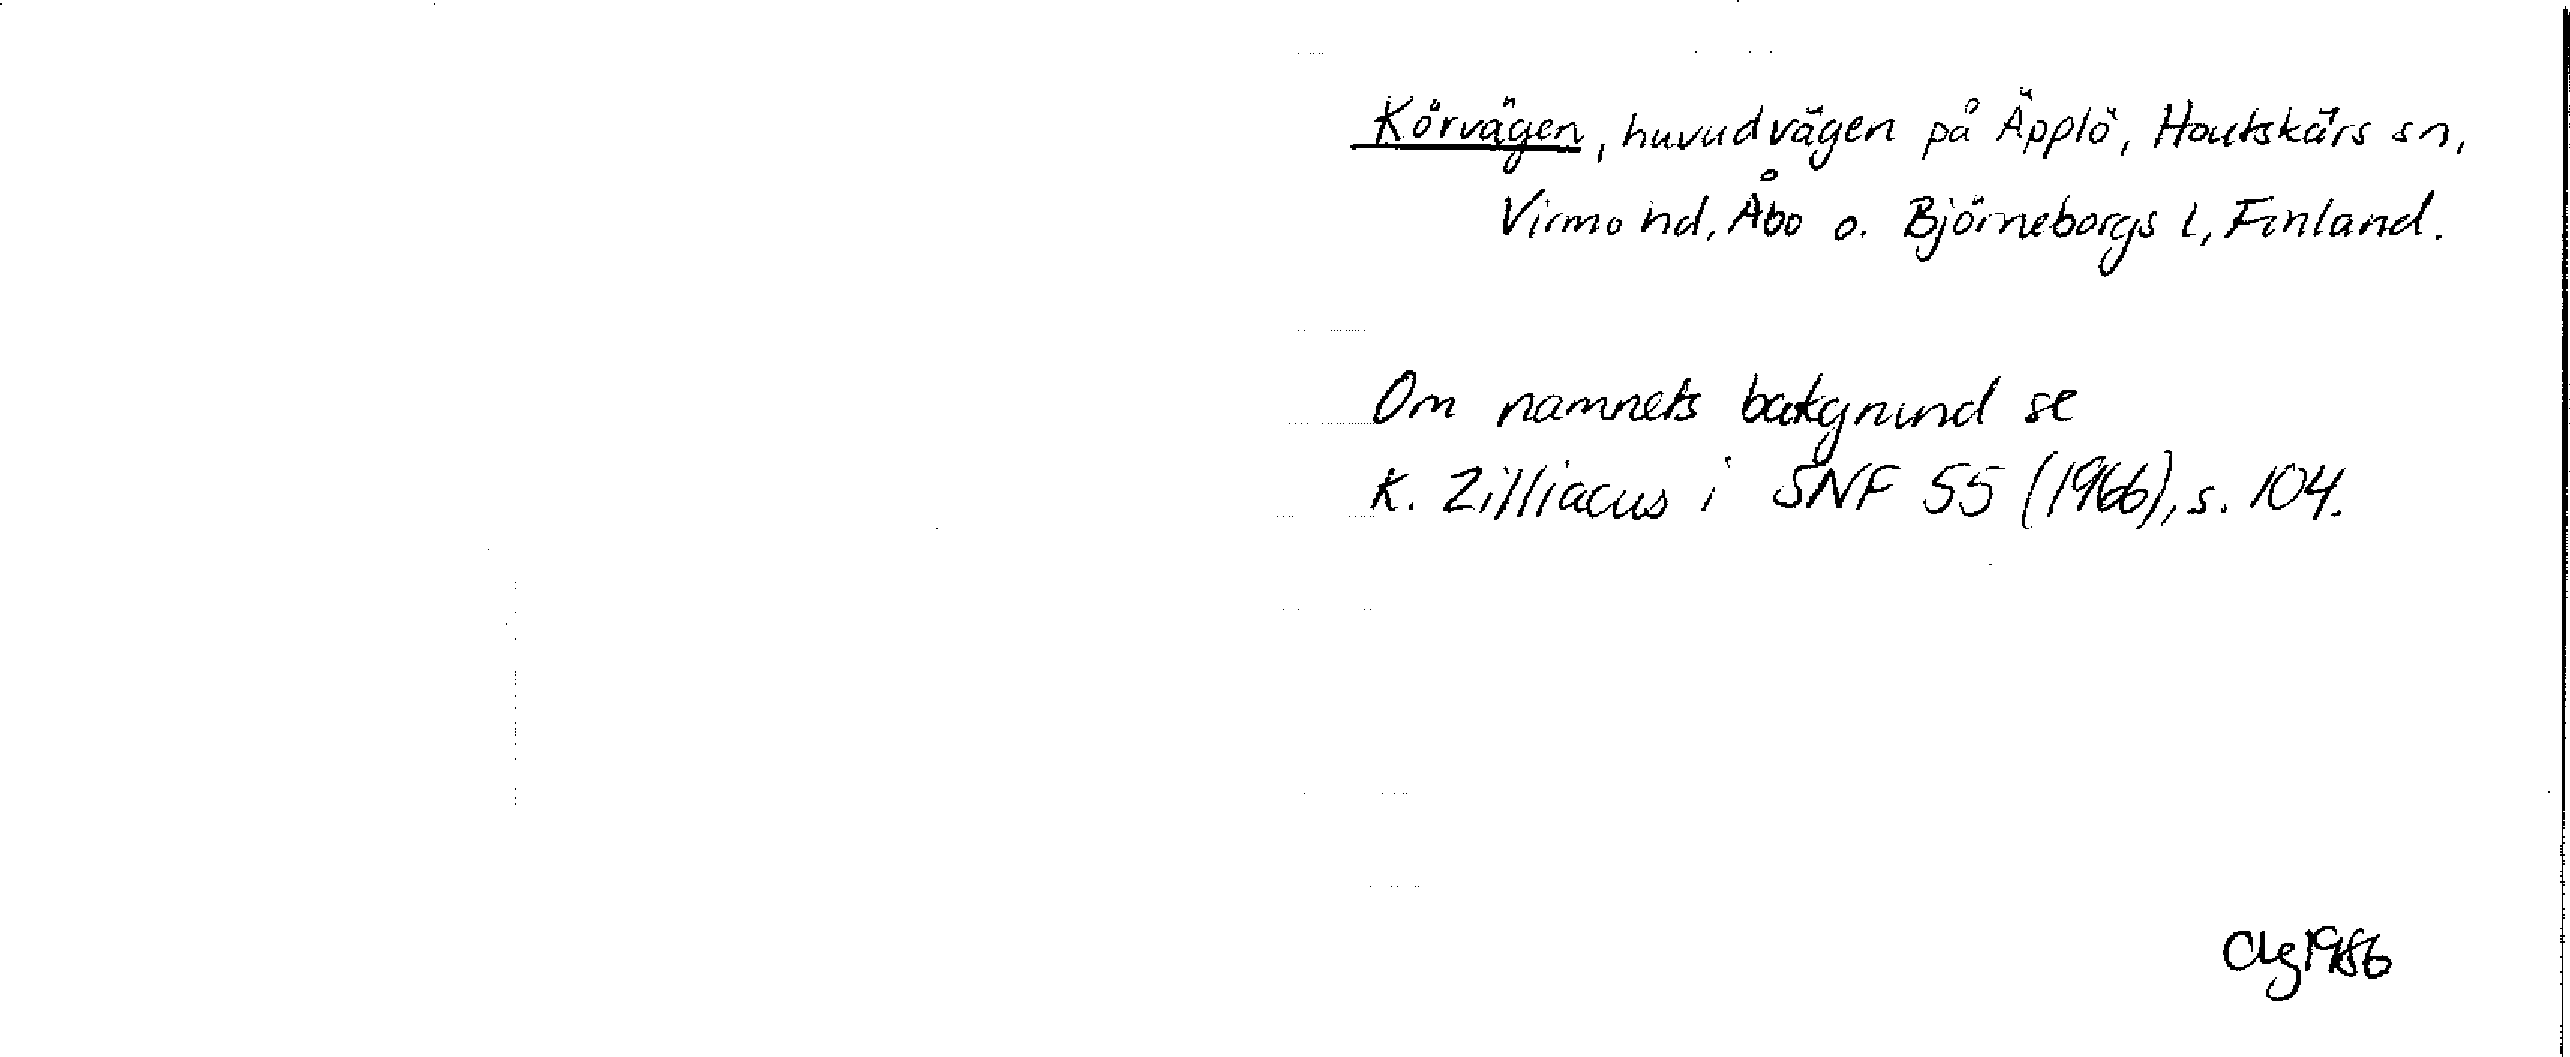 Körvägen, huvudvägen på Äpplö, Houtskärs sn,
Virmo hd, Åbo o. Björneborgs l, Finland.
Om namnets bakgrund se
K. Zilliacus i SNF 55 (1966), s. 104.
1986